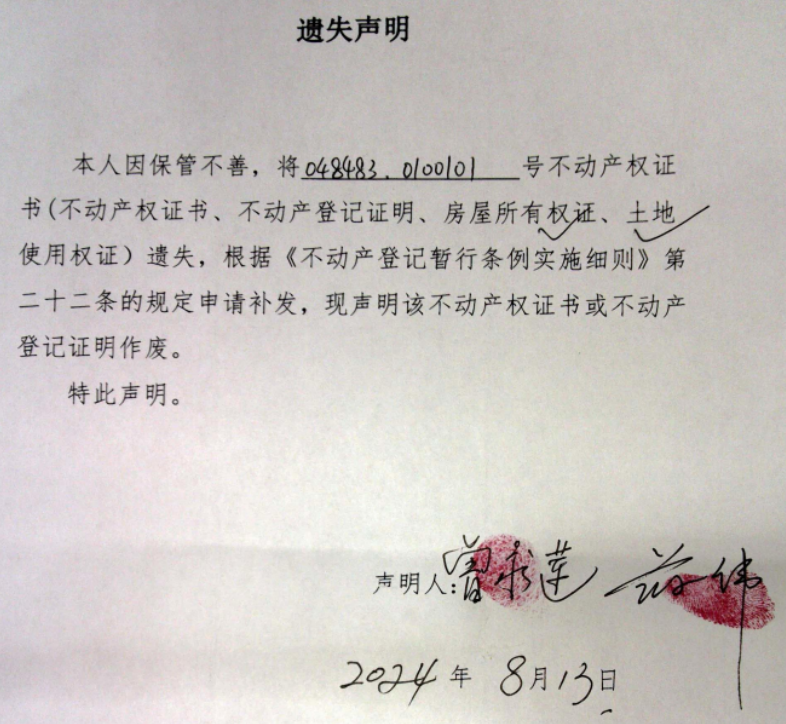 遗失声明
本人因保管不善，将048483.0100101号不动产权证
书(不动产权证书、不动产登记证明、房屋所有权证、土地
使用权证）遗失，根据《不动产登记暂行条例实施细则》第
二十二条的规定申请补发，现声明该不动产权证书或不动产
登记证明作废。
特此声明。
声明人:曾秀莲
2024年8月13日